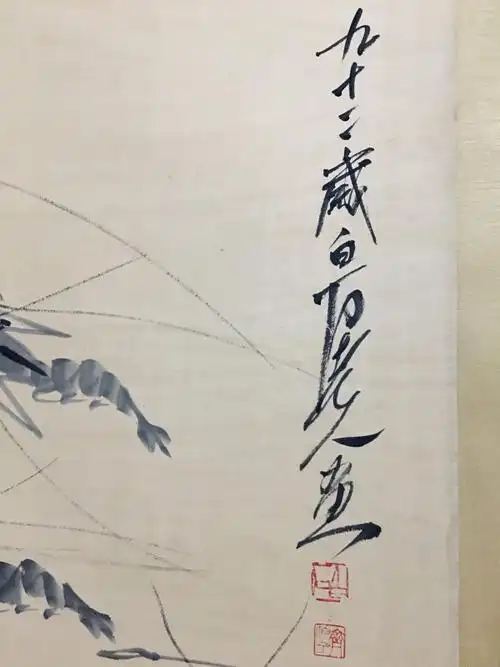 九十二歲白石老人畫